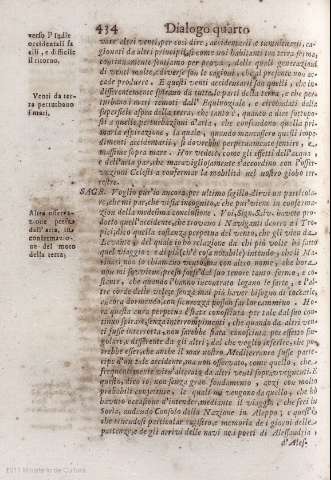 434 Dialogo quarto
verso l'Indie
occidentali fa
cili, e difficile
il ritorno.
Venti da ter-
ra perturbano
i mari.
Altra osserva-
zione presa
dall'aria, in
confermazio-
ne del moto
della terra.
vate altri venti, per così dire, accidentarii e tumultuarii, ca-
gionati da altri principii, e come noi habitanti tra terra ferma,
continuamente sentiamo per prova, delle quali generazioni
di venti molte, e diverse son le cagioni, che al presente non ac-
cade produrre. E questi venti accidentarii son quelli, che in-
differentemente spirano da tutte le parti della terra, e che per
turbano i mari remoti dall'Equinoziale, e circondati dalla
superficie aspra della terra, che tanto è, quanto a dire sottopo-
sti a quelle perturbazioni d'aria, che confondono quella pri-
maria espirazione, la quale, quando mancassero questi impe-
dimenti accidentarii, si dovrebbe perpetuamente sentire, e
massime sopra mare. Hor vedete, come gli effetti dell'acqua,
e dell'aria par, che maravigliosamente s'accordino con l'osser-
vazioni Celesti a confermar la mobilità nel nostro globo ter-
restre.
SAGR. Voglio pur'io ancora per ultimo sigillo dirvi un particola-
re, che mi par, che vi sia incognito, e che pur viene in conferma-
zione della medesima conclusione. Voi, Sign. Salv. havete pro-
dotto quell'accidente, che trovano i Naviganti dentro ai Tro-
pici; dico quella costanza perpetua del vento, che gli vien da
Levante, del quale io ho relazione da chi più volte hà fatto
quel viaggio: e di più (ch'è cosa notabile) intendo, che i Ma-
rinari non lo chiamano vento, ma con altro nome, che hora
non mi sovviene, preso forse dal suo tenore tanto fermo, e co-
stante, che quando l'hanno incontrato legano le sarte, e l'al-
tre corde delle vele, e senza mai più haver bisogno di toccarle,
ancora dormendo, con sicurezza posson far lor cammino. Ho-
ra questa aura perpetua è stata conosciuta per tale dal suo conti-
nuo spirare, senza interrompimenti, che quando da altri ven-
ti fusse interrotta, non sarebbe stata conosciuta per effetto sin-
golare, e differente da gli altri; dal che voglio inferire, che po-
trebbe esser, che anche il mar nostro Mediterraneo fusse parte-
cipe d'un tale accidente, ma non osservato, come quello, che
frequentemente vien'alterato da altri venti sopravvegnenti. E
questo, dico io, non senza gran fondamento, anzi con molto
probabili conietture, le quali mi vengono da quello, che hò
havuto occasion d'intender, mediante il viaggio, che feci in
Soria, andando Consolo della Nazione in Aleppo; e quest'è,
che tenendosi particular registro, e memoria de i giorni delle
partenze, e de gli arrivi delle navi ne i porti di Alessandria,
d'Ales-